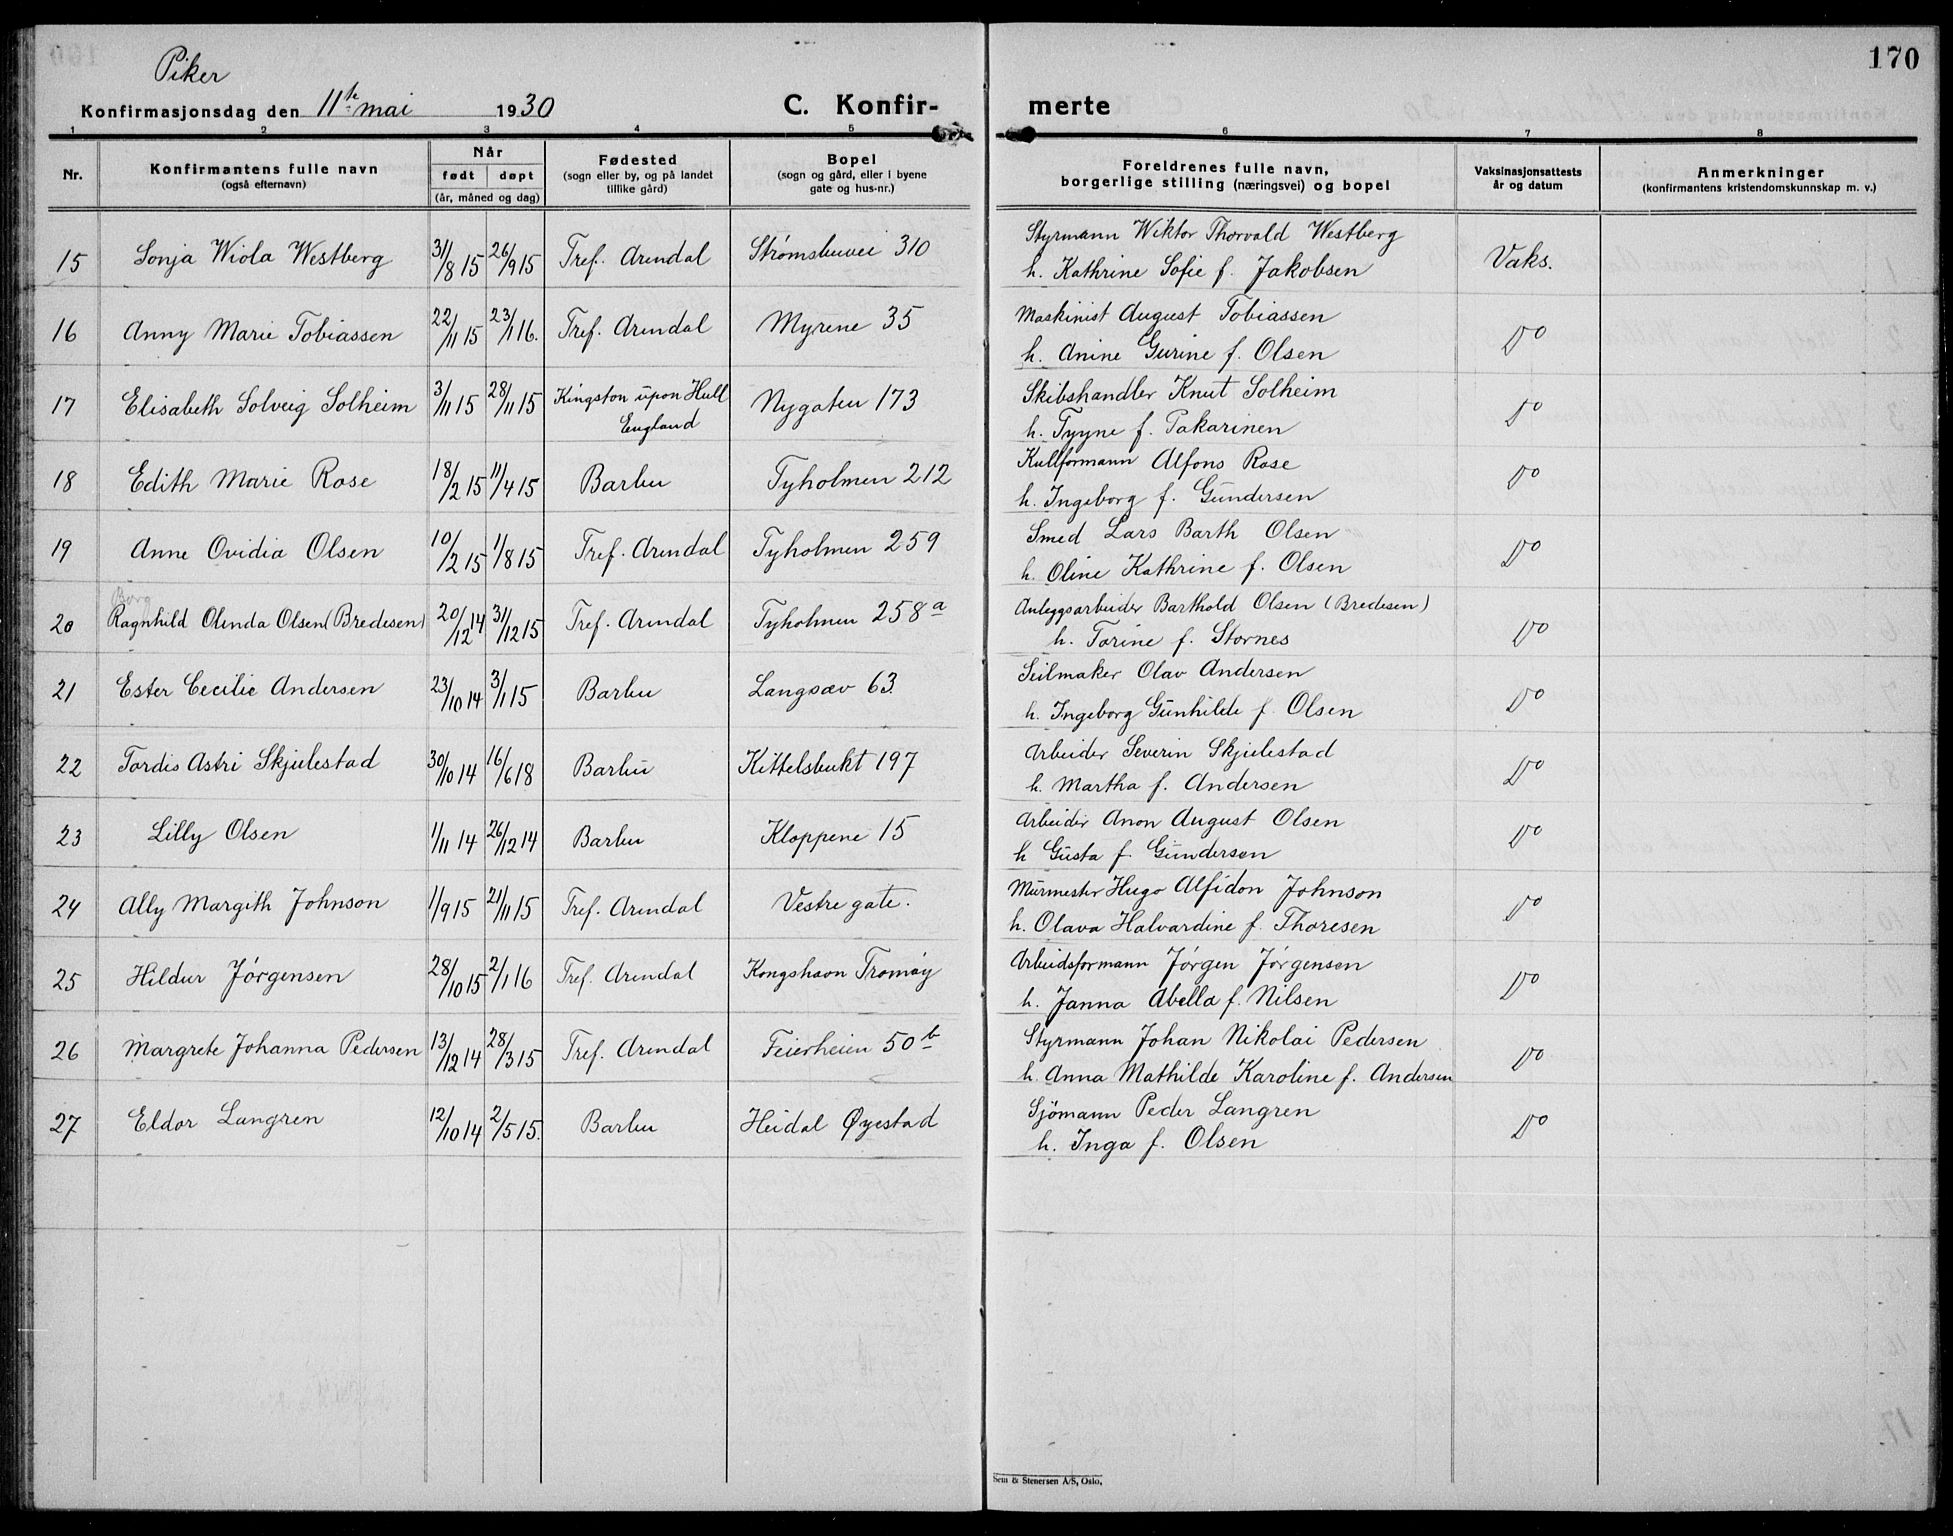 Piker
170
Konfirmasjonsdag den 11te mai 1930 C. Konfir- merte
1 2 3 4 5 6 7 8
Nr. Konfirmantens fulle navn (også efternavn) Når født døpt (år, måned og dag) Fødested (sogn eller by, og på landet tillike gård) Bopel (sogn og gård, eller i byene gate og hus-nr.) Foreldrenes fulle navn, borgerlige stilling (næringsvei) og bopel Vaksinasjonsattests år og datum Anmerkninger (konfirmantens kristendomskunnskap m. v.)
Styrmann Wiktor Thorvald Westberg
15 Sonja Wiola Westberg 31/8 15 26/9 15 Tref. Arendal Strømsbuvei 310 h. Kathrine Sofie f. Jakobsen Vaks.
Maskinist August Tobiassen
16 Anny Marie Tobiassen 22/11 15 23/1 16. Tref. Arendal Myrene 35 h. Anine Gurine f. Olsen Do
Skibshandler Knut Solheim
17 Elisabeth Solveig Solheim 3/11 15 28/11 15 Kingston upon Hull England Nygaten 173 h. Tyyne f. Pakarinen Do
Kullformann Alfons Rose
18 Edith Marie Rose 18/2 15 11/4 15 Barbu Tyholmen 212 h. Ingeborg f. Gundersen Do
Smed Lars Barth Olsen
19 Anne Ovidia Olsen 10/2 15 1/8 15 Tref. Arendal Tyholmen 259 h. Oline Kathrine f. Olsen Do
Borg
Anleggsarbeider Barthold Olsen (Bredesen)
20 Ragnhild Olinda Olsen (Bredesen) 20/12 14 31/12 15 Tref. Arendal Tyholmen 258a h. Torine f. Stornes Do
Seilmaker Olav Andersen
21 Ester Cecilie Andersen 23/10 14 3/1 15 Barbu Langsæv 63. h. Ingeborg Gunhilde f. Olsen Do
Arbeider Severin Skjulestad
22 Tordis Astri Skjulestad 30/10 14 16/6 18 Barbu Kittelsbukt 197 h. Martha f. Andersen Do
Arbeider Anon August Olsen
23 Lilly Olsen 1/11 14 26/12 14 Barbu Kloppene 15 h Gusta f. Gundersen Do
Murmester Hugo Alfidon Johnson
24 Ally Margith Johnson 1/9 15 21/11 15 Tref. Arendal Vestre gate. h. Olava Halvardine f. Thoresen Do
Arbeidsformann Jörgen Jörgensen
25 Hildur Jörgensen 28/10 15 2/1 16 Tref. Arendal Kongshavn Tromøy h. Janna Abella f. Nilsen Do
Styrmann Johan Nikolai Pedersen
26 Margrete Johanna Pedersen 13/12 14 28/3 15 Tref. Arendal Feierheien 50b h. Anna Mathilde Karoline f. Andersen Do
Sjömann Peder Langren
27 Eldor Langren 12/10 14 2/5 15. Barbu Heidal Øyestad h. Inga f. Olsen Do
Sem & Stenersen A/S, Oslo.